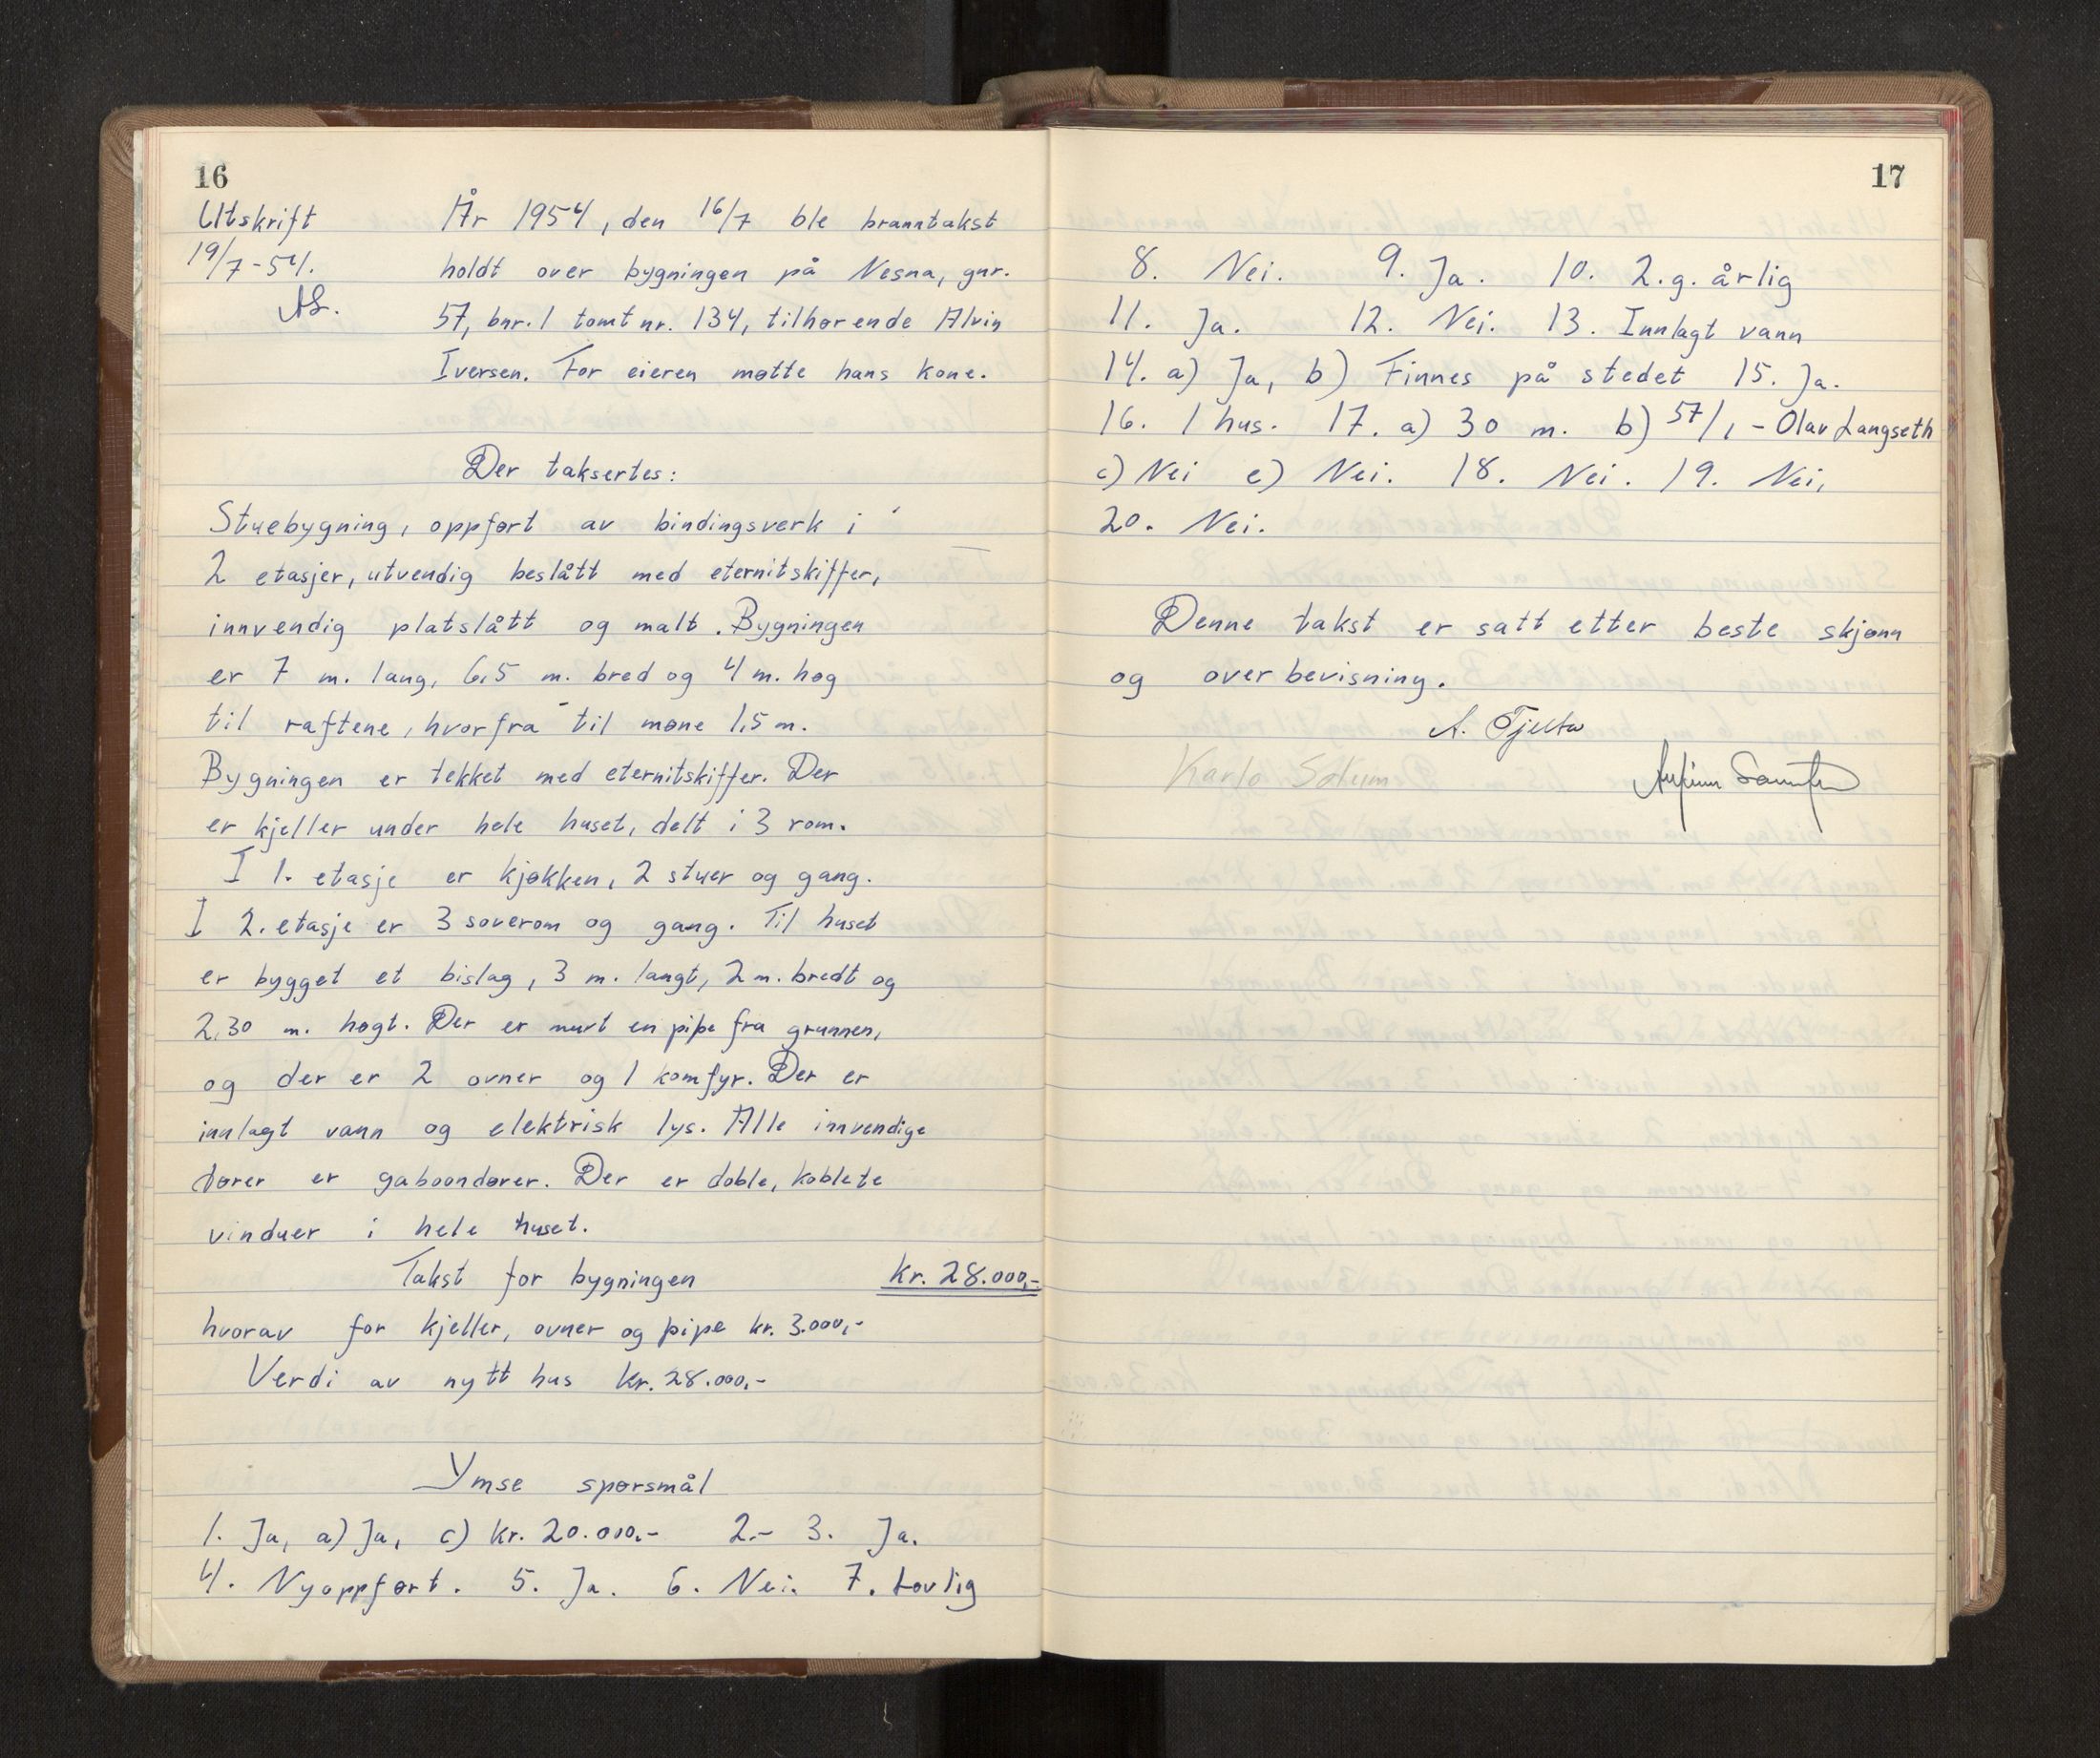 16
Utskrift
19/7-54.
År 1954, den 16/7 ble branntakst
holdt over bygningen på Nesna, gnr.
57, bnr. 1 tomt nr. 134, tilhørende Alvin
Iversen. For eieren møtte hans kone.
Der taksertes:
Stuebygning, oppført av bindingsverk i
2 etasjer, utvendig beslått med eternitskiffer,
innvendig platslått og malt. Bygningen
er 7 m. lang, 6,5 m. bred og 4 m. høg
til raftene, hvorfra til møne 1,5 m.
Bygningen er tekket med eternitskiffer. Der
er kjeller under hele huset, delt i 3 rom.
I 1. etasje er kjøkken, 2 stuer og gang.
I 2. etasje er 3 soverom og gang. Til huset
er bygget et bislag, 3 m. langt, 2 m. bredt og
2,30 m. høgt. Der er murt en pipe fra grunnen,
og der er 2 ovner og 1 komfyr. Der er
innlagt vann og elektrisk lys. Alle innvendige
dører er gaboondører. Der er doble, koblete
vinduer i hele huset.
Takst for bygningen kr. 28.000,-
hvorav for kjeller, ovner og pipe kr. 3.000,-
Verdi av nytt hus kr. 28.000,-
Ymse spørsmål
1. Ja, a) Ja, c) kr. 20.000,- 2.- 3. Ja.
4. Nyoppført. 5. Ja. 6. Nei. 7. Lovlig
17
8. Nei. 9. Ja. 10. 2.g. årlig
11. Ja. 12. Nei. 13. Innlagt vann
14. a) Ja, b) Finnes på stedet 15. Ja.
16. 1 hus. 17. a) 30 m. b) 57/1 - Olav Langseth
c) Nei e) Nei. 18. Nei. 19. Nei.
20. Nei.
Denne takst er satt etter beste skjønn
og overbevisning.
A. Tjelta
Karlo Solum